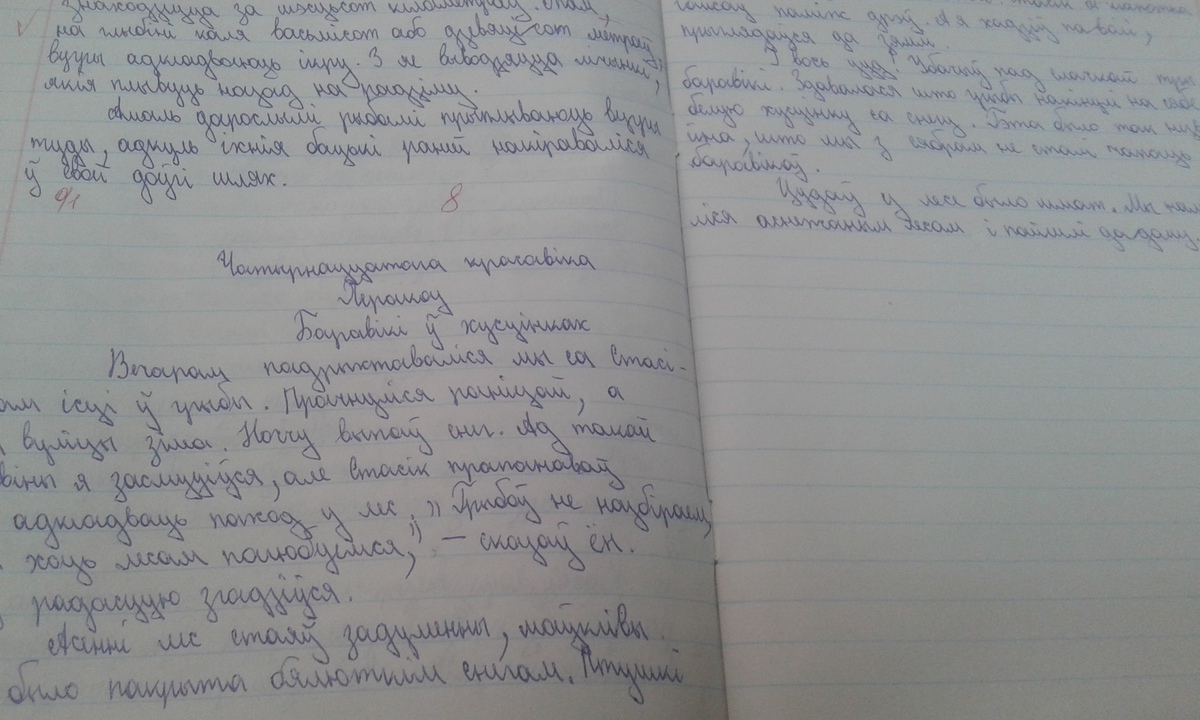 знаходзяцца за шэсцьсот кіламетраў. Там,
на глыбіні каля васьмісот або дзевяцьсот метраў,
вугры адкладваюць ікру. З яе выводзяцца лічынкі,
якія плывуць назад на радзіму.
Амаль дарослымі рыбамі прыплываюць вугры
туды, адкуль іхнія бацькі раней накіраваліся
ў свой доўгі шлях.
9/1 8
Чатырнаццатага красавіка
Пераказ
Баравікі ў хусцінках
Вечарам падрыхтаваліся мы са Стасі-
кам ісці ў грыбы. Прачнуліся раніцай, а
вуліцы зіма. Ноччу выпаў снег. Ад такой
віны я засмуціўся, але Стасік прапанаваў
адкладваць паход у лес. „Грыбоў не назбіраем,
хоць лесам палюбуемся," – сказаў ён.
радасцую згадзіўся.
Асенні лес стаяў задуменны, маўклівы.
было пакрыта бялюткім снегам. Птушкі
паміж дрэў. А я хадзіў павол,
прыглядаўся да зямлі.
І вось цуд! Убачыў пад ёлачкай тры
баравікі. Здавалася што грыбы накінулі на сябе
белую хусцінку са снегу. Гэта было так
што мы з сябрам не сталі чапаць
баравікоў.
Цудаў у лесе было шмат. Мы
ліся аснежаным лесам і пайшлі дадому